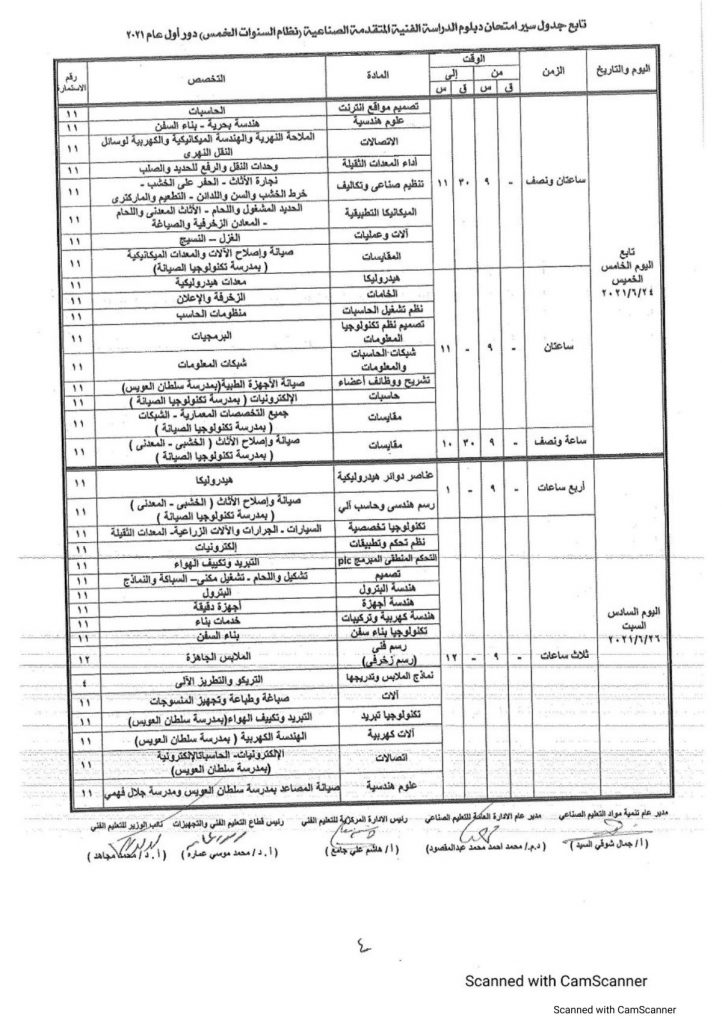 تابع جدول سير امتحان دبلوم الدراسة الفنية المتقدمة الصناعية (نظام السنوات الخمس) دور أول عام ٢٠٢١
اليوم والتاريخ | الزمن | الوقت | المادة | التخصص | رقم الاستمارة
من | إلى
ق | س | ق | س
تابع
اليوم الخامس
الخميس
٢٠٢١/٦/٢٤
ساعتان ونصف | - | ٩ | ٣٠ | ١١
تصميم مواقع انترنت | الحاسبات | ١١
علوم هندسية | هندسة بحرية - بناء السفن | ١١
الاتصالات | الملاحة النهرية والهندسة الميكانيكية والكهربية لوسائل النقل النهرى | ١١
أداء المعدات الثقيلة | وحدات النقل والرفع للحديد والصلب | ١١
تنظيم صناعى وتكاليف | نجارة الأثاث - الحفر على الخشب -
خرط الخشب والسن واللدائن - التطعيم والماركترى | ١١
الميكانيكا التطبيقية | الحديد المشغول واللحام - الأثاث المعدنى واللحام
- المعادن الزخرفية والصياغة | ١١
آلات وعمليات | الغزل – النسيج | ١١
المقايسات | صيانة وإصلاح الآلات والمعدات الميكانيكية
( بمدرسة تكنولوجيا الصيانة) | ١١
ساعتان | - | ٩ | - | ١١
هيدروليكا | معدات هيدروليكية | ١١
الخامات | الزخرفة والإعلان | ١١
نظم تشغيل الحاسبات | منظومات الحاسب | ١١
تصميم نظم تكنولوجيا المعلومات | البرمجيات | ١١
شبكات الحاسبات والمعلومات | شبكات المعلومات | ١١
تشريح ووظائف أعضاء | صيانة الأجهزة الطبية(بمدرسة سلطان العويس) | ١١
حاسبات | الإلكترونيات ( بمدرسة تكنولوجيا الصيانة ) | ١١
مقايسات | جميع التخصصات المعمارية - الشبكات
( بمدرسة تكنولوجيا الصيانة ) | ١١
ساعة ونصف | - | ٩ | ٣٠ | ١٠
مقايسات | صيانة وإصلاح الأثاث ( الخشبى - المعدنى )
( بمدرسة تكنولوجيا الصيانة ) | ١١
اليوم السادس
السبت
٢٠٢١/٦/٢٦
أربع ساعات | - | ٩ | - | ١
عناصر دوائر هيدروليكية | هيدروليكا | ١١
رسم هندسى وحاسب آلي | صيانة وإصلاح الأثاث ( الخشبى - المعدنى )
( بمدرسة تكنولوجيا الصيانة ) | ١١
ثلاث ساعات | - | ٩ | - | ١٢
تكنولوجيا تخصصية | السيارات - الجرارات والآلات الزراعية- المعدات الثقيلة | ١١
نظم تحكم وتطبيقات | إلكترونيات | ١١
التحكم المنطقى المبرمج pic | التبريد وتكييف الهواء | ١١
تصميم | تشكيل واللحام - تشغيل مكنى– السباكة والنماذج | ١١
هندسة البترول | البترول | ١١
هندسة أجهزة | أجهزة دقيقة | ١١
هندسة كهربية وتركيبات | خدمات بناء | ١١
تكنولوجيا بناء سفن | بناء السفن | ١١
رسم فنى
(رسم زخرفى) | الملابس الجاهزة | ١٢
نماذج الملابس وتدريجها | التريكو والتطريز الآلى | ٤
آلات | صباغة وطباعة وتجهيز المنسوجات | ١١
تكنولوجيا تبريد | التبريد وتكييف الهواء(بمدرسة سلطان العويس) | ١١
آلات كهربية | الهندسة الكهربية ( بمدرسة سلطان العويس) | ١١
اتصالات | الإلكترونيات- الحاسباتالإلكترونية
(بمدرسة سلطان العويس) | ١١
علوم هندسية | صيانة المصاعد بمدرسة سلطان العويس ومدرسة جلال فهمي | ١١
مدير عام تنمية مواد التعليم الصناعي | مدير عام الادارة العامة للتعليم الصناعى | رئيس الادارة المركزية للتعليم الفني | رئيس قطاع التعليم الفني والتجهيزات | نائب الوزير للتعليم الفني
(أ/ جمال شوقي السيد ) | (د.م./ محمد احمد محمد عبدالمقصود) | (أ/ هاشم علي جامع ) | (أ.د/ محمد موسي عماره ) | (أ.د/ محمد مجاهد )
٤
Scanned with CamScanner
Scanned with CamScanner